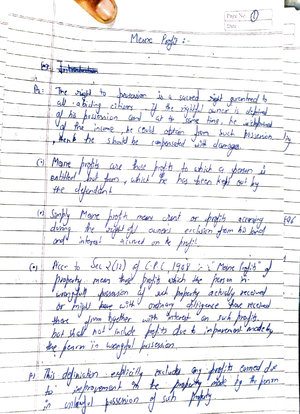 Page No. 1
Date
Mesne Profit :-
The right to possession is a sacred right guaranteed to
all abiding citizens. If the rightful owner is deprived
of his possession and at the same time, he
of the income, he could obtain from such possession
, he should be compensated with damages.
(•) Mesne profits are those profits to which a person is
entitled but from which he has been kept out by
the defendant.
(•) Simply Mesne profits mean rent or profits accruing
during the rightful owners exclusion from his land
and interest on the profit.
(•) Accor to Sec 2(12) of C.P.C, 1908 :- "Mesne Profits" of
property mean those profits which the person in
wrongfull possession of such property actually received
or might have with ordinary diligence have received
there from together with interest on such profit
but shall not include profits due to improvement made by
the person in wrongful possession.
This definition explicitly excludes any profits earned due
to improvement in the property made by the person
in wrongful possession of such property